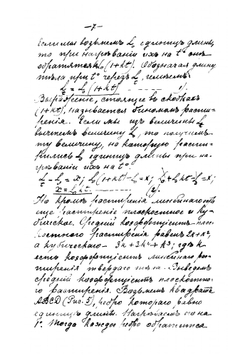 -7-
Если мы возьмемъ l₀ единицъ длины,
то при нагреваніи ихъ на t° они
обратятся l₀(1+kt). Обозначая длину
тѣла при t° чрезъ lₜ, имѣемъ
lₜ = l₀(1+kt)
Выраженіе, стоящее въ скобкахъ
(1+kt), называется биномомъ расши-
ренія. Если мы изъ величины lₜ
вычтемъ величину l₀, то получимъ
ту величину, на которую расши-
рились l₀ единицъ длины при на-
греваніи ихъ на t°
lₜ - l₀ = x; l₀(1+kt) - l₀ = x; l₀ + l₀kt - l₀ = x;
x = l₀kt
Но кромѣ расширенія линейнаго есть
еще расширеніе плоскостное и ку-
бическое. Средній коэффиціентъ
плоскостного расширенія равенъ 2k+k²,
а кубическаго 3k+3k²+k³; гдѣ k
есть коэффиціентъ линейнаго рас-
ширенія твердаго тѣла. Выведемъ
средній коэффиціентъ плоскостно-
го расширенія. Возьмемъ квадратъ
ABCD (Рис. 5), ребро котораго равно
единицѣ длины. Нагрѣваемъ его на
1°. Тогда каждое ребро обратится